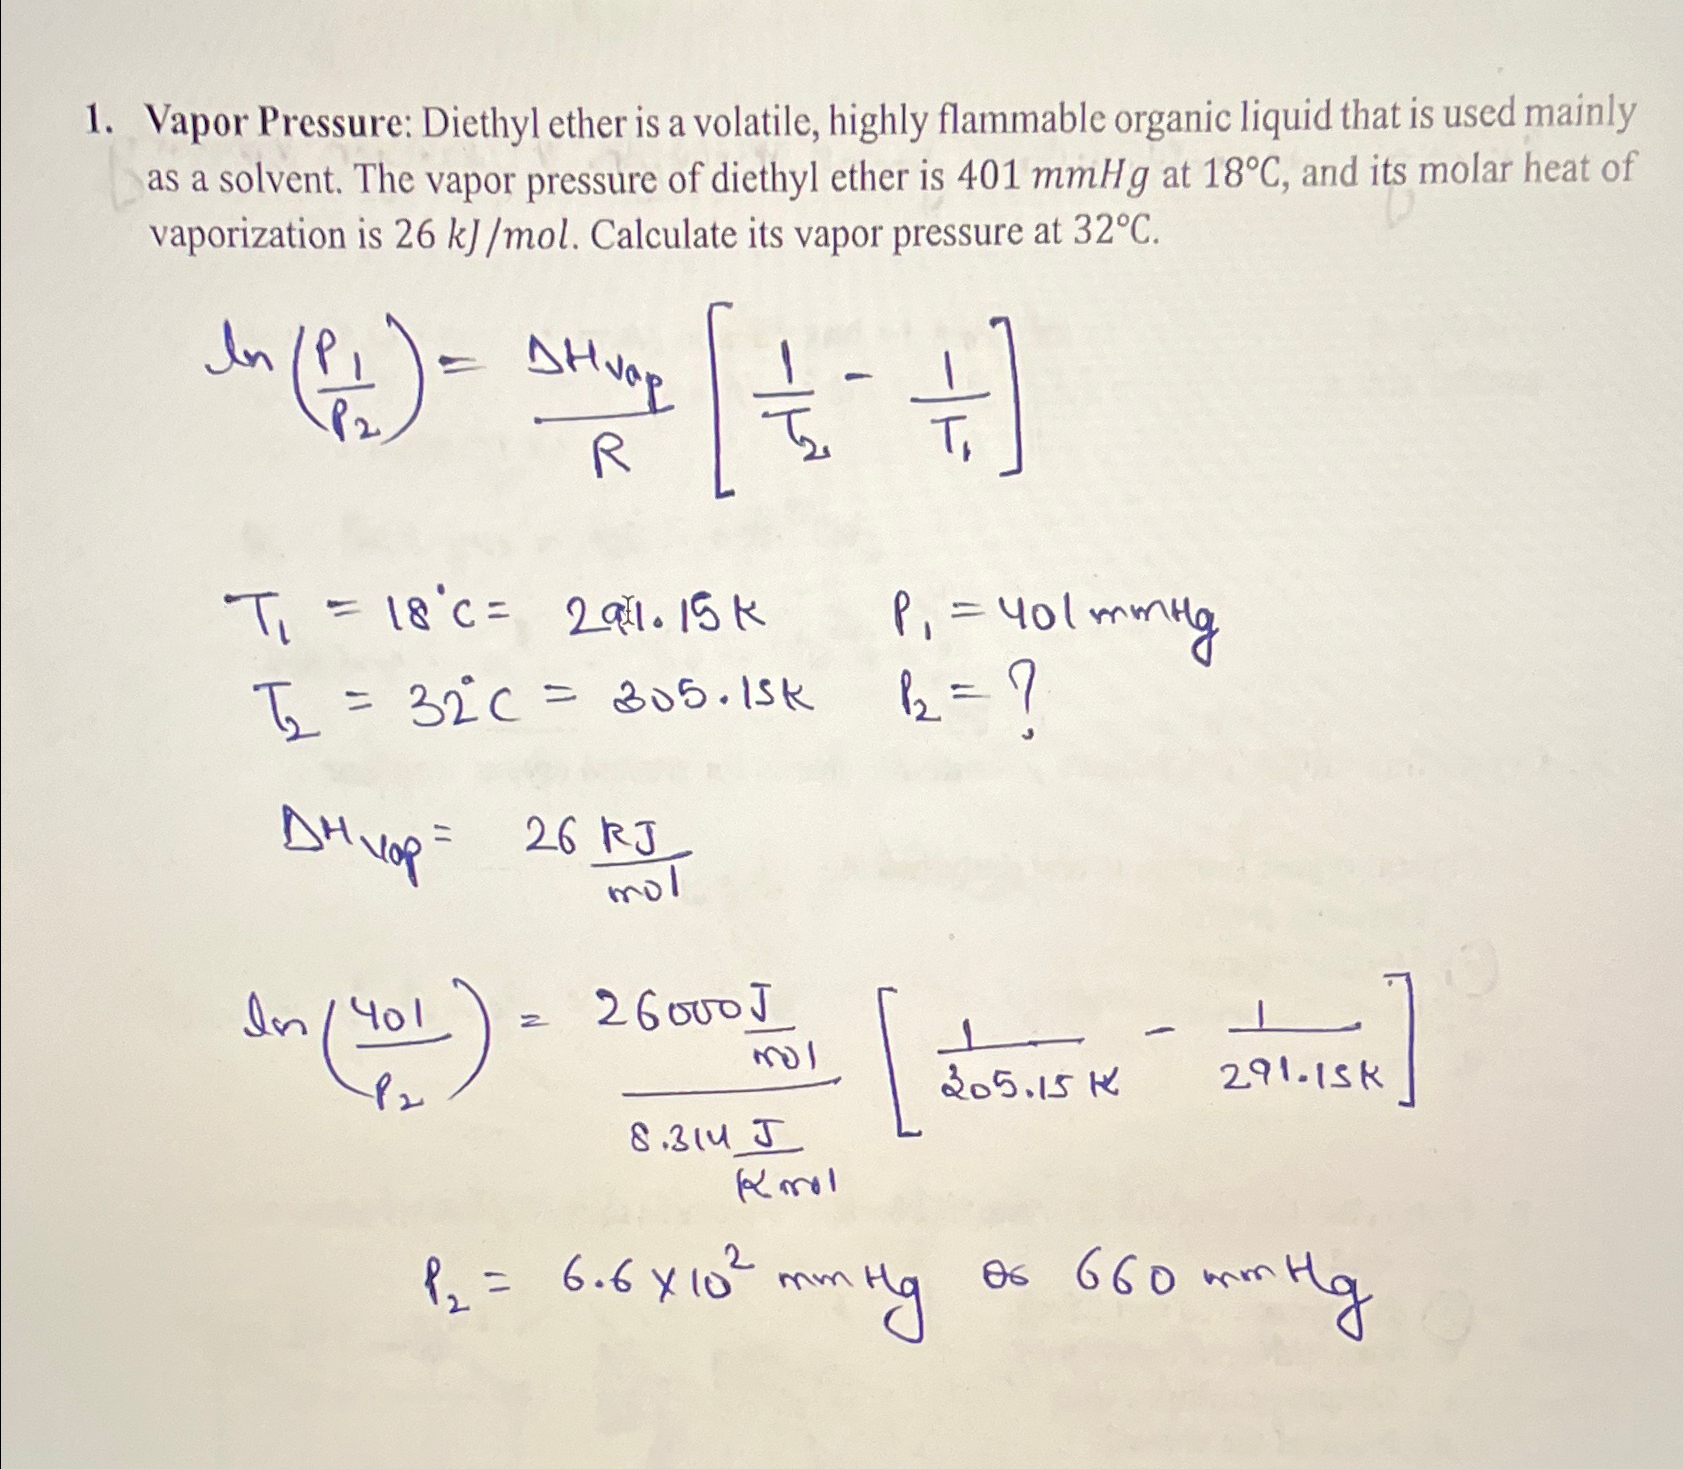 1. Vapor Pressure: Diethyl ether is a volatile, highly flammable organic liquid that is used mainly
as a solvent. The vapor pressure of diethyl ether is 401 mmHg at 18°C, and its molar heat of
vaporization is 26 kJ/mol. Calculate its vapor pressure at 32°C.
ln(P₁/P₂) = ΔHvap/R [1/T₂ - 1/T₁]
T₁ = 18°C = 291.15K P₁ = 401 mmHg
T₂ = 32°C = 305.15K P₂ = ?
ΔHvap = 26 kJ/mol
ln(401/P₂) = 26000 J/mol / 8.314 J/K mol [1/305.15 K - 1/291.15K]
P₂ = 6.6 × 10² mmHg or 660 mmHg